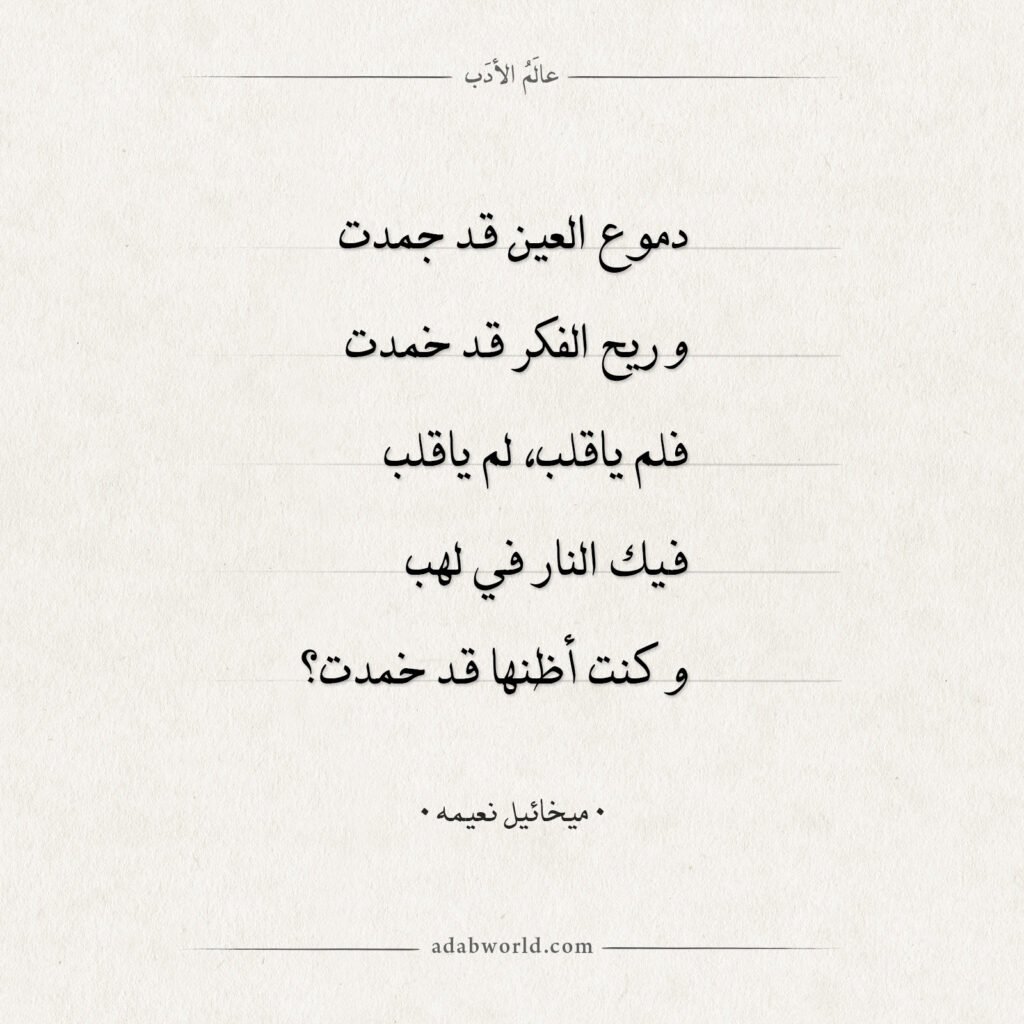 عالَمُ الأدَب
دموع العين قد جمدت
و ريح الفكر قد خمدت
فلم ياقلب، لم ياقلب
فيك النار في لهب
و كنت أظنها قد خمدت؟
• ميخائيل نعيمه •
adabworld.com